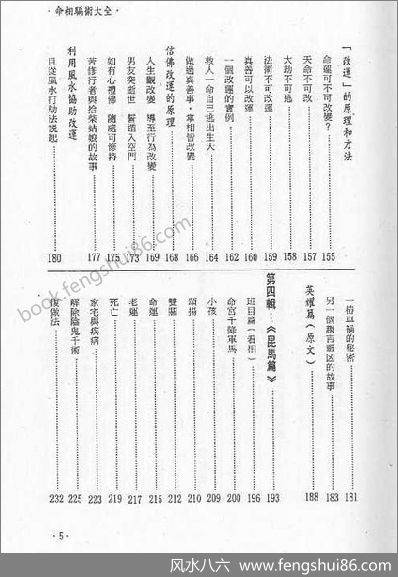 ·命相騙術大全·
「改運」的原理和方法
命運可不可改變？155
天命不可改157
大劫不可逃158
法術不可改運159
真善可以改運160
一個改運的實例162
救人一命自己逃出生天164
做過真善事，掌相皆改變166
信佛改運的原理168
人生觀改變 導至行為改變169
男友突逝世 誓踏入空門173
如有心禮佛 隨處可修持175
苦修行者與拾柴姑娘的故事177
利用風水協助改運
自從風水打劫法說起180
的秘密181
另一個的故事183
英耀篇（原文）188
第四輯 《尾馬篇》193
篇（看相）196
命宮千軍馬200
小孩209
210
雙關212
命運215
老運217
死亡219
家宅與疾病223
解除陰鬼千術225
復做法232
·5·
book.fengshui86.com
风水八六 www.fengshui86.com